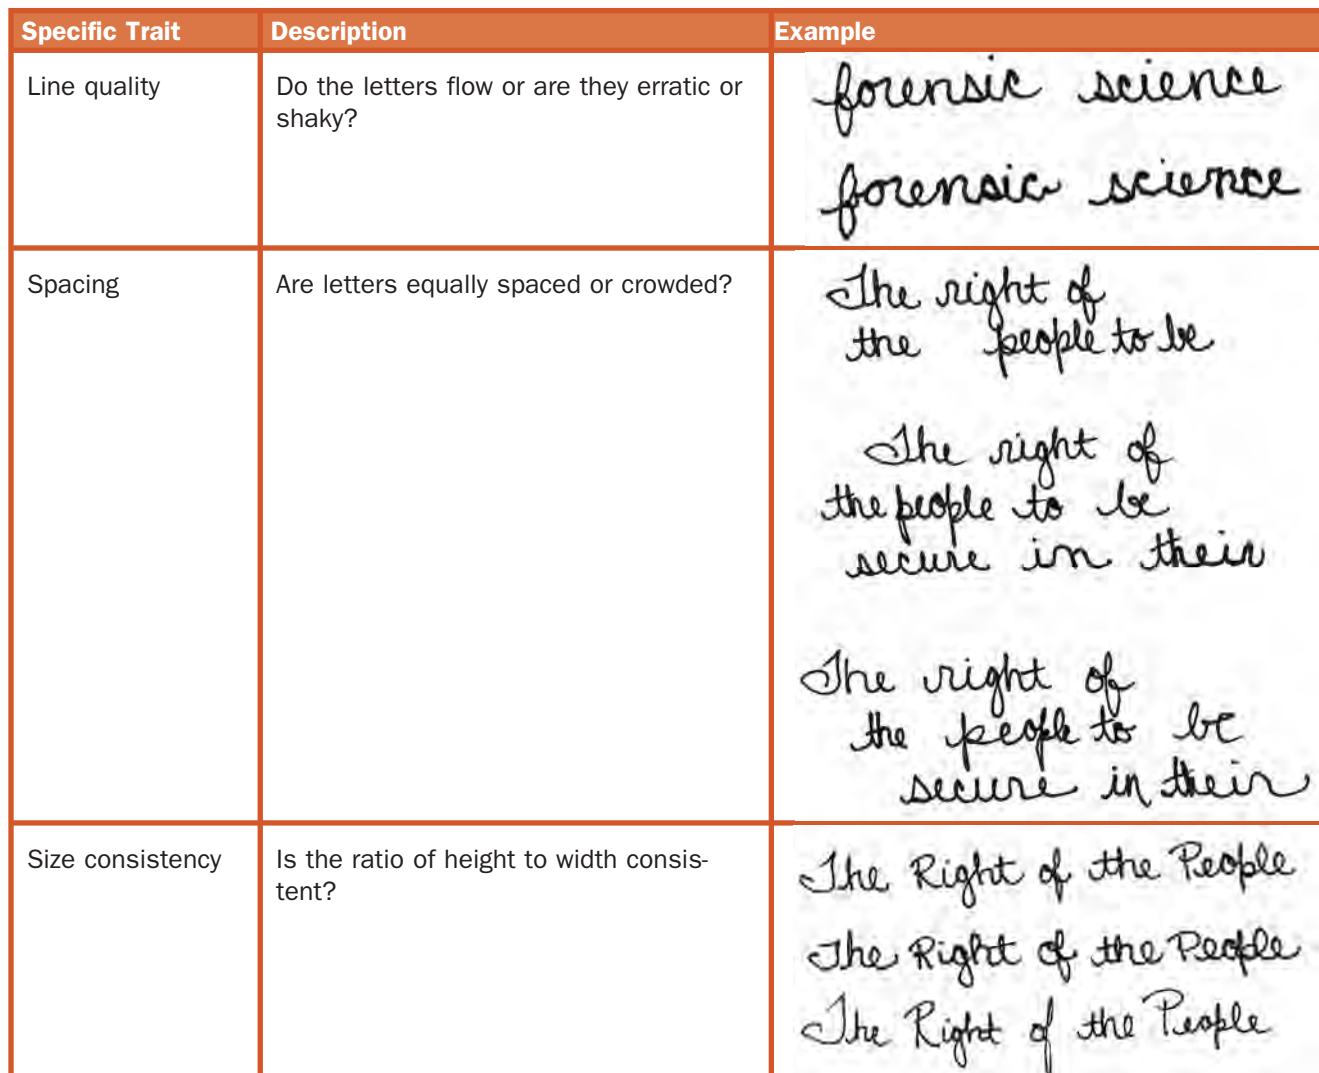 Specific Trait Description Example
Line quality
Do the letters flow or are they erratic or
shaky?
forensic science
forensic science
Spacing
Are letters equally spaced or crowded?
The right of
the people to be
The right of
the people to be
secure in their
The right of
the people to be
secure in their
Size consistency
Is the ratio of height to width consis-
tent?
The Right of the People
The Right of the People
The Right of the People